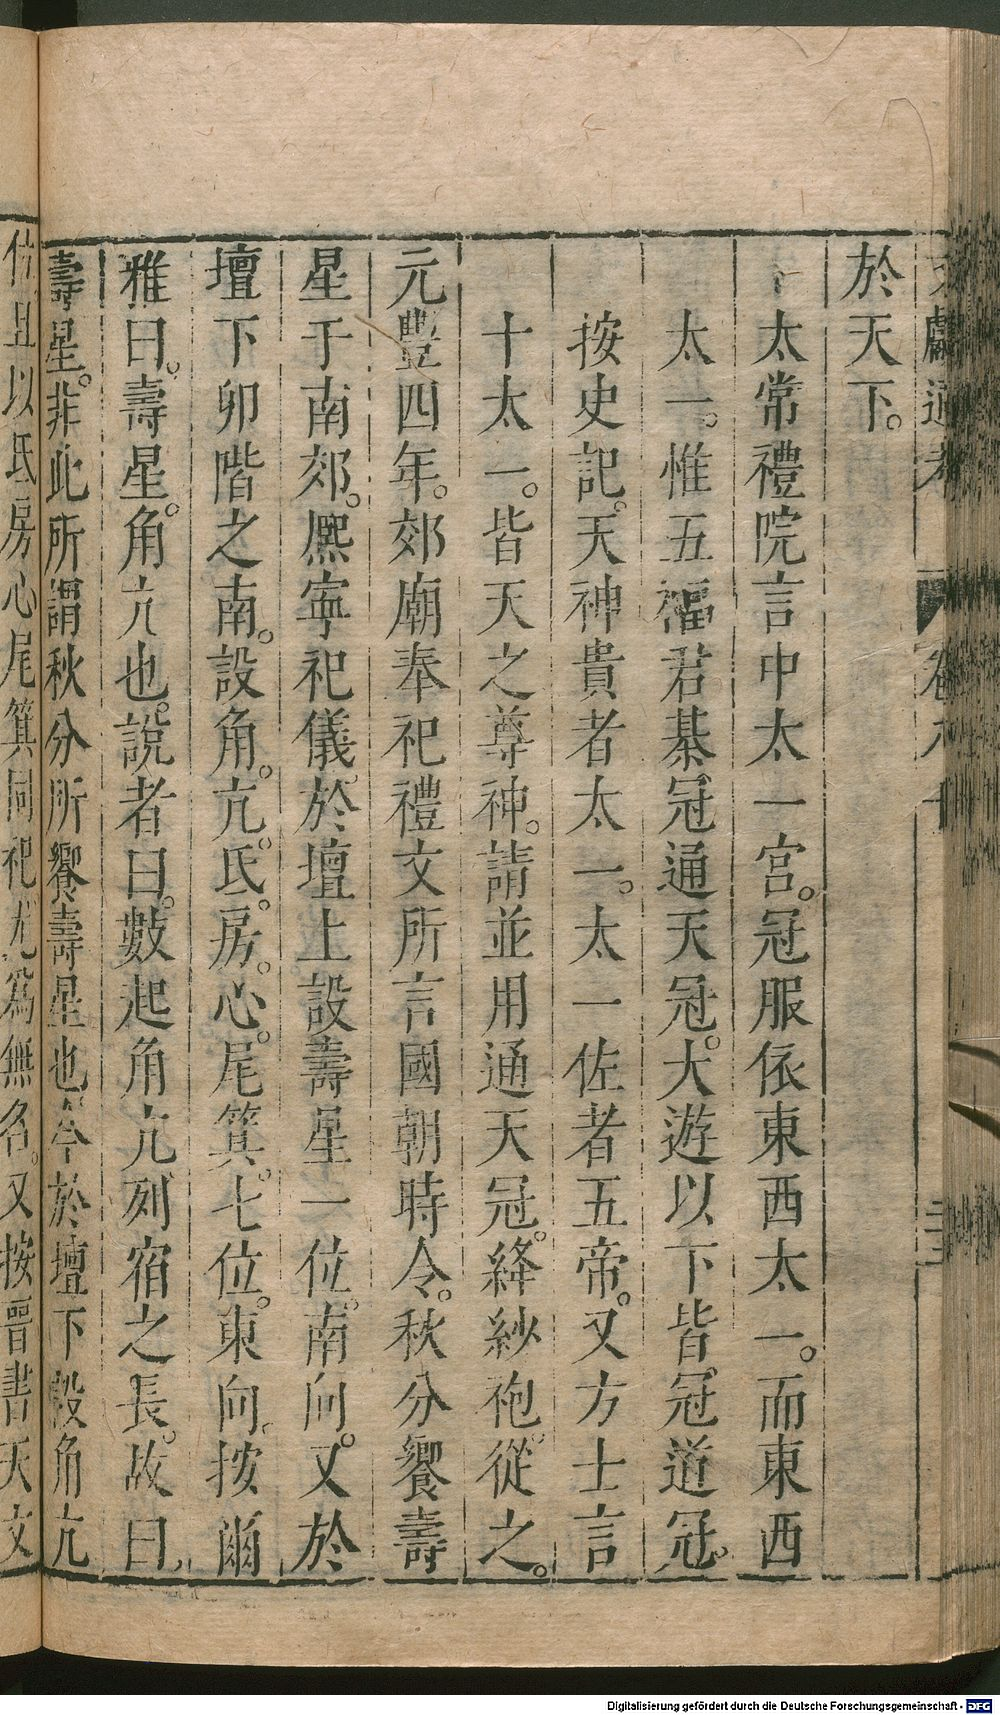 文獻通考 卷八十
於天下。
太常禮院言中太一宮。冠服依東西太一。而東西
太一。惟五福君綦冠通天冠。大遊以下皆。冠道冠。
按史記。天神貴者太一。太一佐者五帝。又方士言
十太一。皆天之尊神。請並用通天冠。絳紗袍。從之。
元豐四年。郊廟奉祀禮文所言國朝時令。秋分饗壽
星于南郊。熈寧祀儀。於壇上設壽星一位。南向。又於
壇下卯階之南。設角。亢。氐。房。心。尾箕。七位。東向。按爾
雅曰。壽星。角亢也。說者曰。數起角亢列宿之長。故曰
壽星。非此所謂秋分所饗壽星也今於壇下設角亢
位且以氐房心尾箕同祀尤爲無名。又按晉書天文
Digitalisierung gefördert durch die Deutsche Forschungsgemeinschaft - DFG